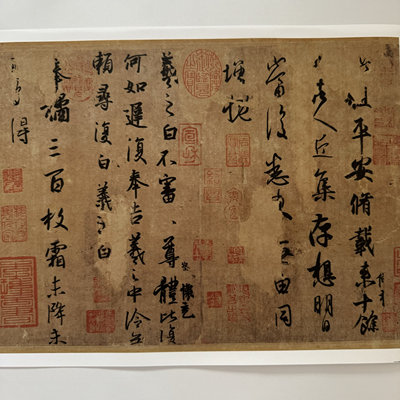 此粗平安脩載來十餘
日諸人近集存想明日
當復悉來無由同
增慨
羲之白不審尊體比復
察 懷充
何如遲復奉告羲之中冷無
賴尋復白羲之白
奉橘三百枚霜未降未
可多得